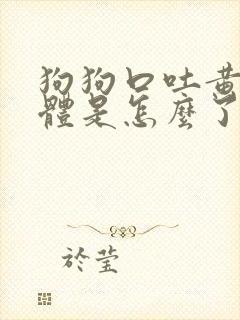 狗狗口吐黄
體是怎麼了
於莹